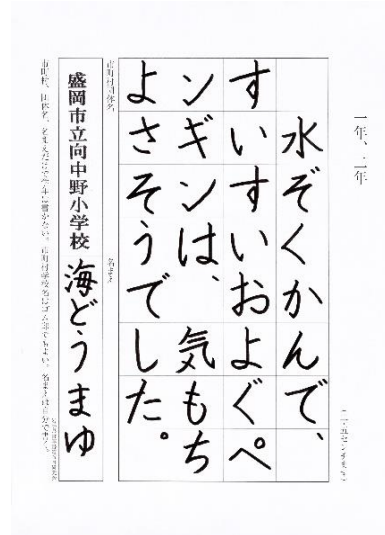 一年、二年
水ぞくかんで、
すいすいおよぐペ
ンギンは、気もち
よさそうでした。
市町村団体名
盛岡市立向中野小学校
名まえ
海どうまゆ